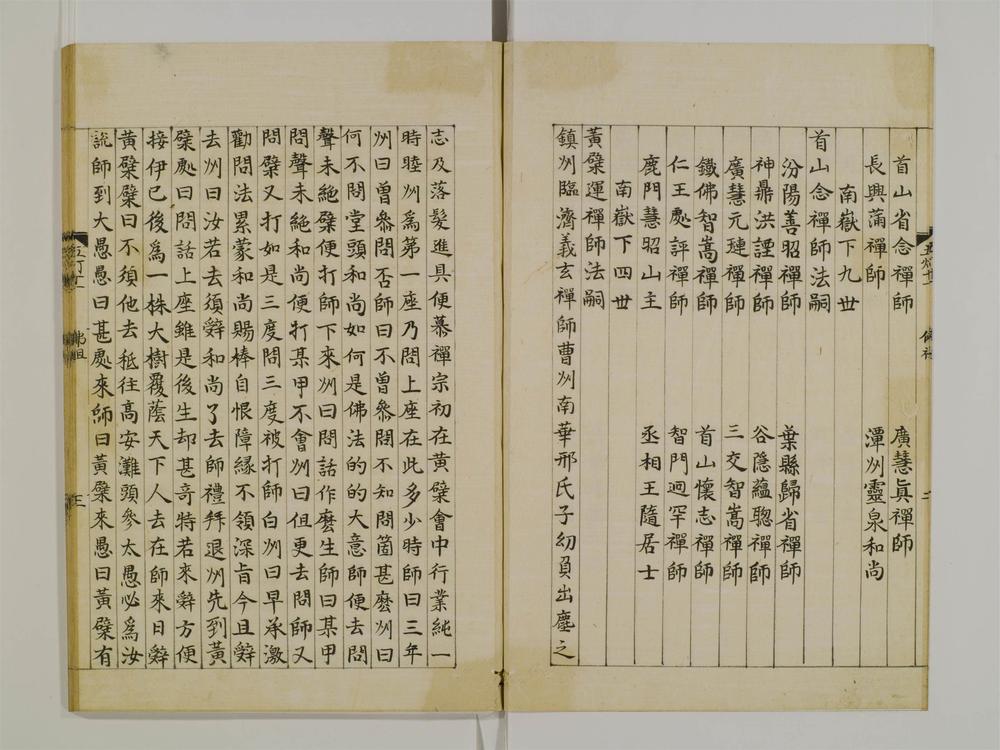 首山省念禪師 廣慧眞禪師
長興蒲禪師 潭州靈泉和尚
南嶽下九世
首山念禪師法嗣
汾陽善昭禪師 葉縣歸省禪師
神鼎洪諲禪師 谷隱蘊聰禪師
廣慧元璉禪師 三交智嵩禪師
鐵佛智嵩禪師 首山懷志禪師
仁王處評禪師 智門迥罕禪師
鹿門慧昭山主 丞相王隨居士
南嶽下四世
黃檗運禪師法嗣
鎮州臨濟義玄禪師曹州南華邢氏子幼負出塵之
志及落髮進具便慕禪宗初在黃檗會中行業純一
時睦州爲第一座乃問上座在此多少時師曰三年
州曰曾參問否師曰不曾參問不知問箇甚麼州曰
何不問堂頭和尚如何是佛法的的大意師便去問
聲未絶檗便打師下來州曰問話作麼生師曰某甲
問聲未絶和尚便打某甲不會州曰但更去問師又
問檗又打如是三度問三度被打師白州曰早承激
勸問法累蒙和尚賜棒自恨障緣不領深旨今且辭
去州曰汝若去須辭和尚了去師禮拜退州先到黃
檗處曰問話上座雖是後生却甚奇特若來辭方便
接伊已後爲一株大樹覆蔭天下人去在師來日辭
黃檗檗曰不須他去秖往高安灘頭參大愚必爲汝
說師到大愚愚曰甚處來師曰黃檗來愚曰黃檗有
佛祖
三